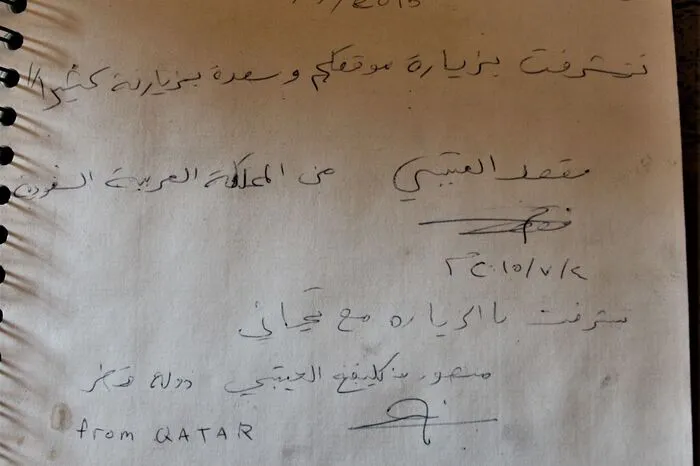 /2015
تشرفت بزيارة موقعكم وسعدة بزيارته كثيرا
مقعد العتيبي من المملكة العربية السعودية
٢٠١٥/٧/٢م
شرفت باالزياره مع تحياتي
منصور العتيبي دولة قطر
from QATAR